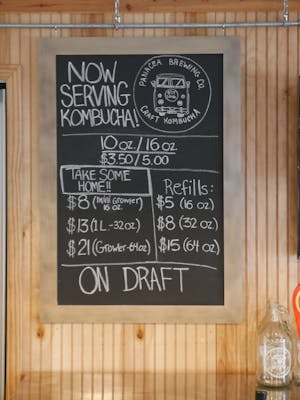 NOW
SERVING
KOMBUCHA!
PANACEA BREWING CO.
CRAFT KOMBUCHA
10 oz / 16 oz
$3.50 / 5.00
TAKE SOME
HOME!!
$8 (Mini Growler
16 oz)
$13 (1 L - 32 oz)
$21 (Growler - 64 oz)
Refills:
$5 (16 oz)
$8 (32 oz)
$15 (64 oz)
ON DRAFT